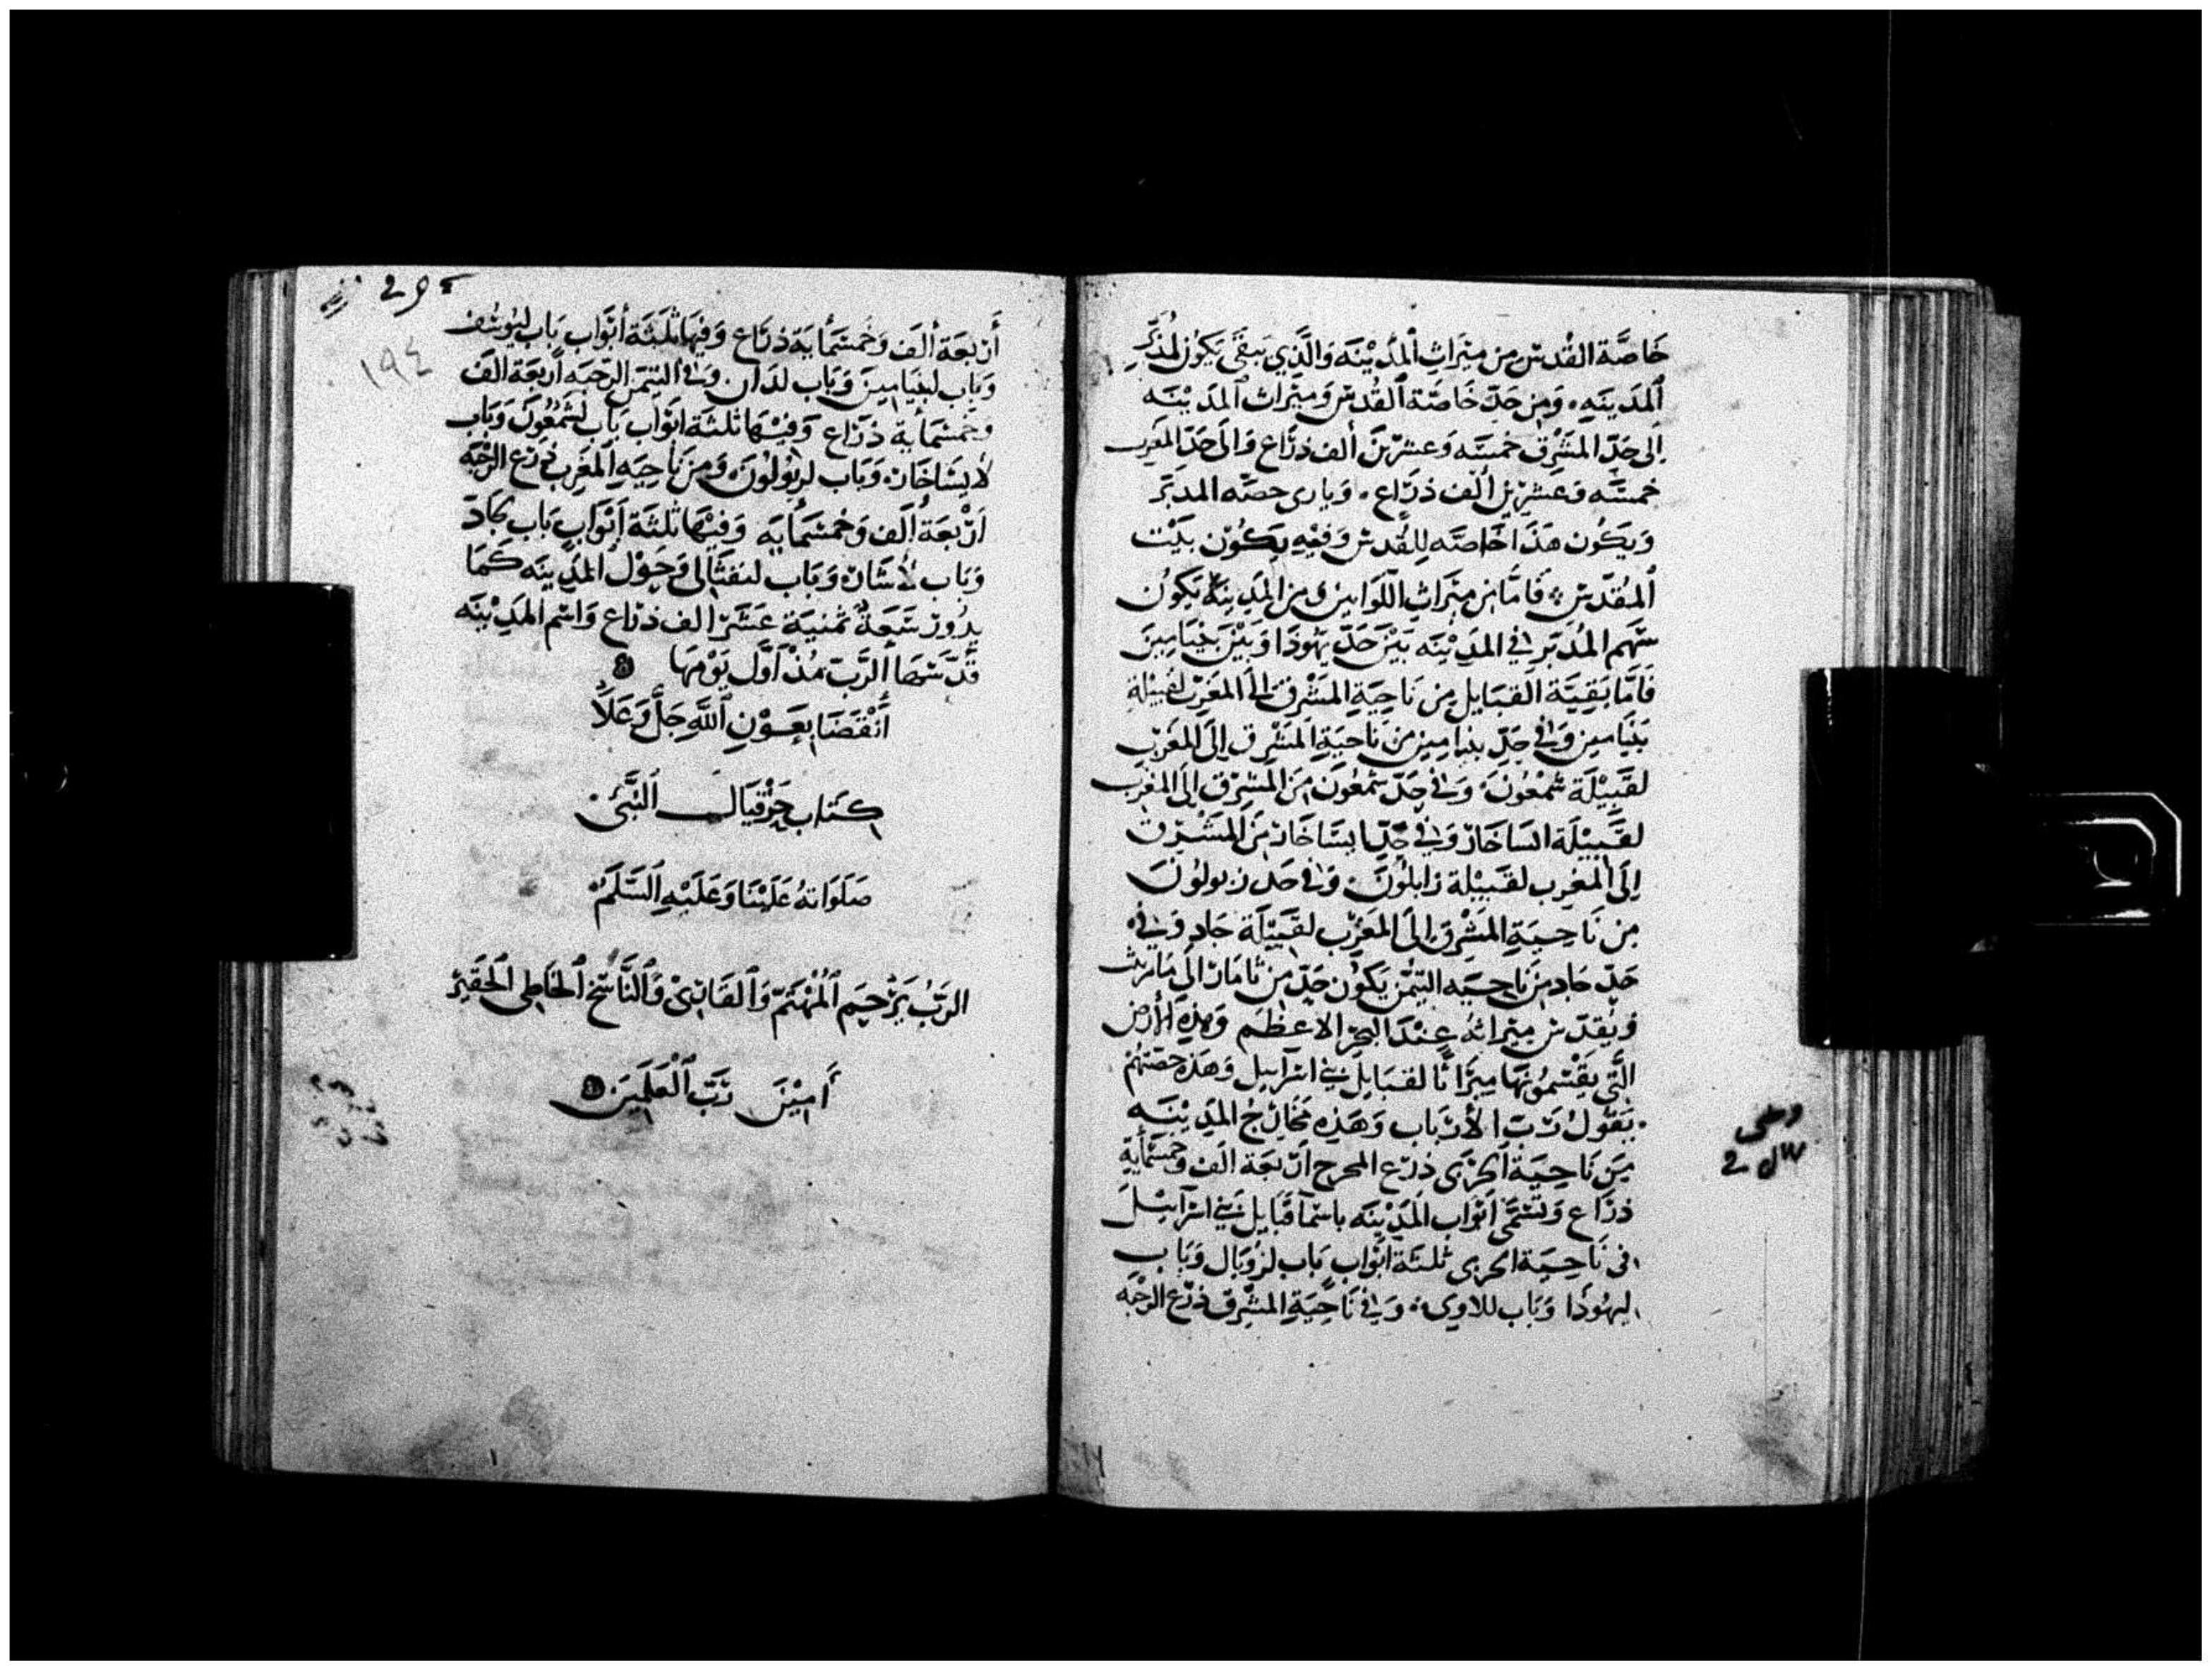 خَاصَّة القُدس من ميَراثِ المَدْينَه وَالَّذِي يَبقَى يَكوُن لمُدَبِّر
المَدينَهِ. وَمن حَدّ خَاصَّة القُدسْ وَميَراث المَديْنَه
اِلى حَدِّ المَشرِقْ خمسَّه وَعشرْينَ ألف ذرَاع وَالىَ حَدّ المَغرب
خمسَّه وَعشرْين ألف ذرَاع. وَيارى حصَّه المدبَر
وَيكُون هَذَا خَاصَّه لِلقُدسْ وَفيْهِ يكُوْن بَيْت
المُقدّسْ فَامَّا من ميَراثِ اللّوَانين وَمن المَدينَة يَكوُن
سَهم المُدَبَر في المَديْنَه بَيْن حَدّ يَهُوذَا وَبَيْن بنيَامينَ
فَامَّا بَقيَة القبَايل من نَاحيَةِ المَشْرق الىَ المغَرْب لقَبيْلة
بنيَامين وَفي حَدّ بنيامين من نَاحيَةِ المَشْرِق اِلىَ المَغربْ
لقَبيْلَة شَمْعُونَ وَفي حَدّ شمْعُونَ منَ المَشرق اِلىَ المغْرب
لقَبيْلَة ايسَاخَارْ وَفي حَدّ ايسَاخَارْ منَ المَشْرق
اِلىَ المغرب لقَبيْلة زابلُوَنَ. وَفي حَد زبولوُنَ
من نَاحيَةِ المَشْرِق اِلىَ المَغَربْ لقَبيْلَة جَاد وَفي
حَدّ جَاد منَ نَاحيَه التيْمُن يَكوُن حَدّ من ثَامَارْ اِلىَ مَاريْث
وَيُقدّسْ ميرَاثهُ عنْدَ البَحْر الاعظَم وَهذِه الأرْض
الَّتي يقْسمُونهَا ميرَاثًا لقبَايلْ بَني اسْرَآييل وَهَذه حصّتهُمْ
يَقوُل رَبّ الأرْبَاب وَهَذِه مَخَارِجُ المَديْنَه
من نَاحيَة الجرْبَى ذرْع المخرج ارْبعَة الَف وَخمسْمأيَةِ
ذرَاع وَتسَمَّى ابْوَاب المَديْنَه باسْمآ قبَايل بَني اسْرَآييْل
فى نَاحيَة الجربى ثلثَة ابْوَاب بَاب لرُوبَال وَبَاب
ليهُوذَا وَبَاب للاوي. وَفي نَاحيَةِ المشْرِق ذرْع الرَحْبَه
أرْبعَة ألَف وَخُمسْمأيَة ذرَاع وَفيهَا ثلَثَة أبْوَاب بَاب ليُوسُف
وَبَاب لبنيَامينَ وَبَاب لدَان. وَفى التيْمَن الرّحبَه أرْبعَة الفَ
وَخمسْمأيَة ذرَاع وَفيْهَا ثلثَة ابْوَاب بَاب لشمْعُونَ وَبَاب
لايسَاخَار وَبَاب لزبُولوُنَ وَمن نَاحيَه المَغرِب ذرْع الرحْبَة
ارْبعَة ألَف وَخُمسْمأيَه وَفيْهَا ثلثَة أبْوَاب بَاب لجَادْ
وَبَاب لأشَارْ وَبَاب لنفثَالى وَحَوْل المَدينَه كَمَا
يدُوْر سَبعَة ثمنيَة عَشَرْ الف ذرْاع وَاسْم المَديْنَه
قدّسَهَا الرَّبّ مُنْذ اوَّل يَوْمهَا
أنْقَضَا بعَوْنِ اللَّهِ جَلَّ وَعَلاَ
كتَاب حزْقيَال النَّبيّ
صَلَوَاتهُ عَليْنَا وَعَليْه السَّلَم
الرَبُّ يَرْحَم المُهْتَمّ وَالقَارْئ وَالنَّاسْخ الخَاطى الحَقيْر
أَميْنَ رَبّ العَلَميَن
١٩٤